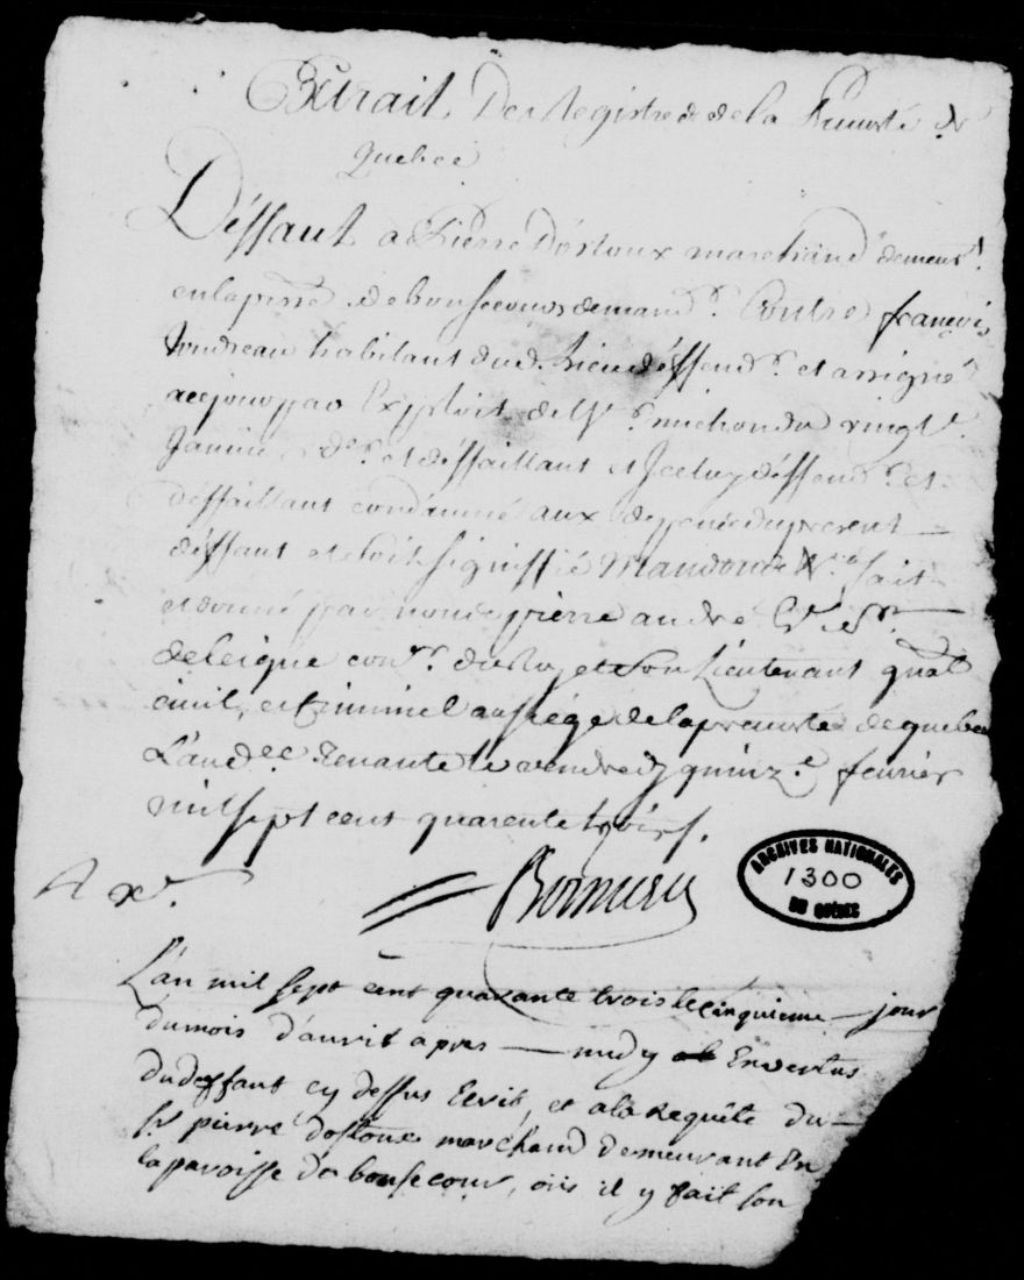 Extrait Des Registres de la Prevosté de
Quebec
Déffaut a Pierre Dostoux marchand demeurt
en la pssé de bonsecours demandr. Contre françois
habitant dud. Lieu déffendr. et assigné
a ce jour par Exploit de Sr. michon du vingte.
Janvier dr. et déffaillant et Jceluy déffendr. et
déffaillant condamné aux dépens du present
déffaut et soit signiffié Mandons &ca. fait
et donné par nous pierre andré Ecr. Sr.
deleigne conr. du Roy et son Lieutenant gnal
civil, et Criminel au siége de la prevosté de quebec
L'audce. Tenante le vendredy quinze. fevrier
mil sept cent quarente trois.
Boisseau
ARCHIVES NATIONALES
1300
DU QUÉBEC
L'an mil sept cent quarante trois le cinquieme jour
du mois d'avril apres midy En vertus
du deffaut cy dessus Ecrit, et a la Requête du
Sr pierre dostoue marchand demeurant En
la paroisse de bonsecour, ou il y fait son